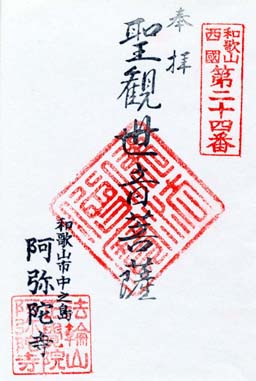 奉拝
和歌山
西國
第二十四番
聖観世音菩薩
和歌山市中之島
阿弥陀寺
法輪山
阿弥陀寺